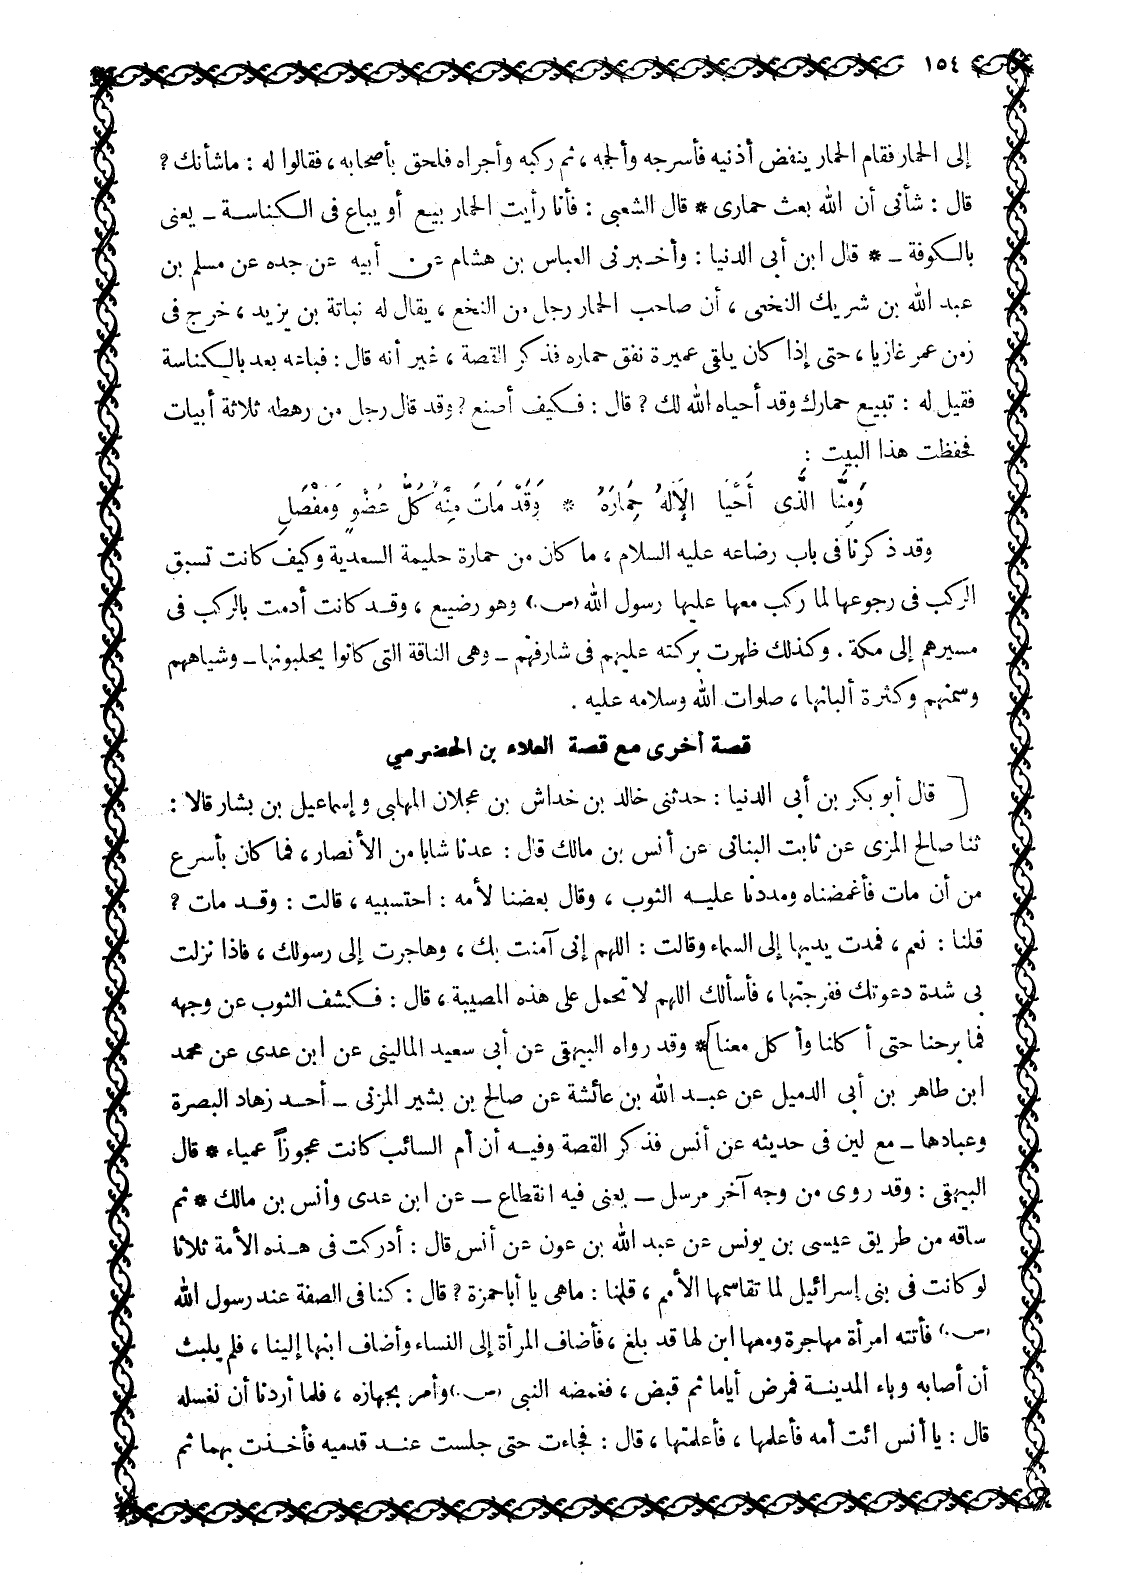 ١٥٤
إلى الحمار فقام الحمار ينفض أذنيه فأسرجه وألجمه ، ثم ركبه وأجراه فلحق بأصحابه ، فقالوا له : ماشأنك ؟
قال : شأنى أن الله بعث حمارى * قال الشعبى : فأنا رأيت الحمار بيع أو يباع فى الكناسة ــ يعنى
بالكوفة ــ * قال ابن أبى الدنيا : وأخبرنى العباس بن هشام عن أبيه عن جده عن مسلم بن
عبد الله بن شريك النخعى ، أن صاحب الحمار رجل من النخع ، يقال له نباتة بن يزيد ، خرج فى
زمن عمر غازيا ، حتى إذا كان يلقى عميرة نفق حماره فذكر القصة ، غير أنه قال : فباعه بعد بالكناسة
فقيل له : تبيع حمارك وقد أحياه الله لك ؟ قال : فكيف أصنع ؟ وقد قال رجل من رهطه ثلاثة أبيات
فحفظت هذا البيت :
وَمِنَّا الَّذى أَحْيَا الإِلهُ حِمَارَهُ * وَقَدْ مَاتَ مِنْهُ كُلُّ عُضْوٍ وَمَفْصَلِ
وقد ذكرنا فى باب رضاعه عليه السلام ، ما كان من حمارة حليمة السعدية وكيف كانت تسبق
الركب فى رجوعها لما ركب معها عليها رسول الله (ص) وهو رضيع ، وقد كانت أدمت بالركب فى
مسيرهم إلى مكة . وكذلك ظهرت بركته عليهم فى شارفهم ــ وهى الناقة التى كانوا يحلبونها ــ وشياههم
وسمنهم وكثرة ألبانها ، صلوات الله وسلامه عليه .
قصة أخرى مع قصة العلاء بن الحضرمي
[ قال أبو بكر بن أبى الدنيا : حدثنى خالد بن خداش بن عجلان المهلبى و إسماعيل بن بشار قالا :
ثنا صالح المزى عن ثابت البنانى عن أنس بن مالك قال : عدنا شابا من الأنصار ، فما كان بأسرع
من أن مات فأغمضناه ومددنا عليه الثوب ، وقال بعضنا لأمه : احتسبيه ، قالت : وقد مات ؟
قلنا : نعم ، فمدت يديها إلى السماء وقالت : اللهم إنى آمنت بك ، وهاجرت إلى رسولك ، فاذا نزلت
بى شدة دعوتك ففرجتها ، فأسألك اللهم لا تحمل على هذه المصيبة ، قال : فكشف الثوب عن وجهه
فما برحنا حتى أكلنا وأكل معنا] * وقد رواه البيهقى عن أبى سعيد المالينى عن ابن عدى عن محمد
ابن طاهر بن أبى الدميل عن عبد الله بن عائشة عن صالح بن بشير المزنى ــ أحد زهاد البصرة
وعبادها ــ مع لين فى حديثه عن أنس فذكر القصة وفيه أن أم السائب كانت عجوزاً عمياء * قال
البيهقى : وقد روى من وجه آخر مرسل ــ يعنى فيه انقطاع ــ عن ابن عدى وأنس بن مالك * ثم
ساقه من طريق عيسى بن يونس عن عبد الله بن عون عن أنس قال : أدركت فى هذه الأمة ثلاثا
لو كانت فى بنى إسرائيل لما تقاسمها الأمم ، قلنا : ماهى يا أباحمزة ؟ قال : كنا فى الصفة عند رسول الله
(ص) فأتته امرأة مهاجرة ومعها ابن لها قد بلغ ، فأضاف المرأة إلى النساء وأضاف ابنها إلينا ، فلم يلبث
أن أصابه وباء المدينة فمرض أياما ثم قبض ، فغمضه النبى (ص) وأمر بجهازه ، فلما أردنا أن نغسله
قال : يا أنس ائت أمه فأعلمها ، فأعلمتها ، قال : فجاءت حتى جلست عند قدميه فأخذت بهما ثم